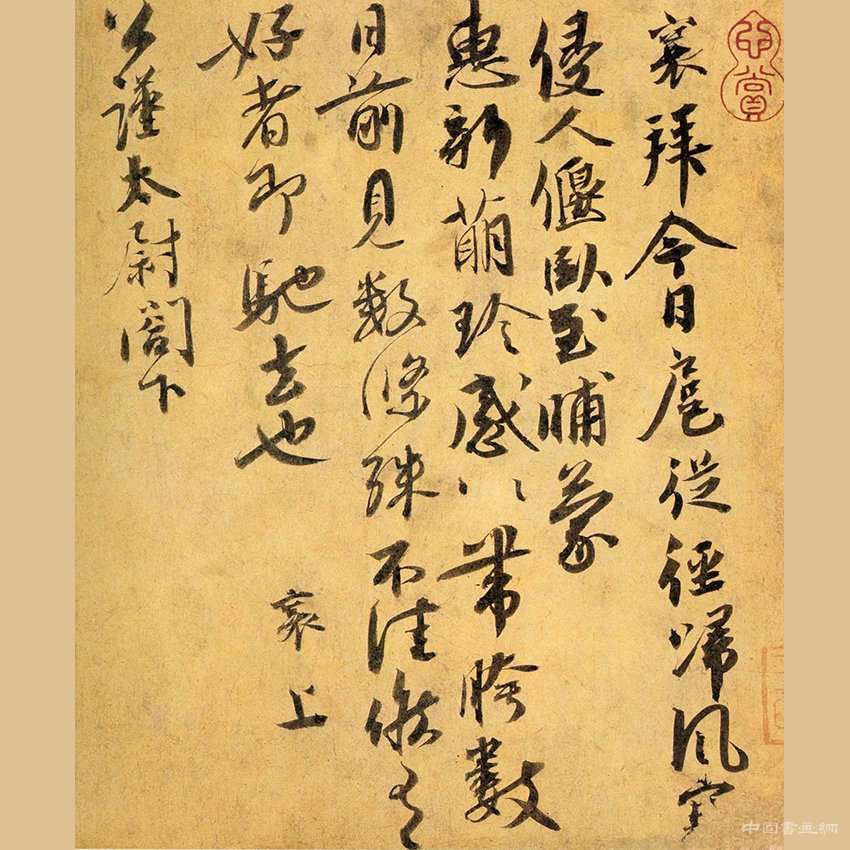 襄拜今日扈從徑歸風寒
侵人偃臥至晡蒙
惠新萌珍感〻帶胯數
日前見数條殊不佳候有
好者即馳去也
襄上
公謹太尉閤下
賞
中国書画網